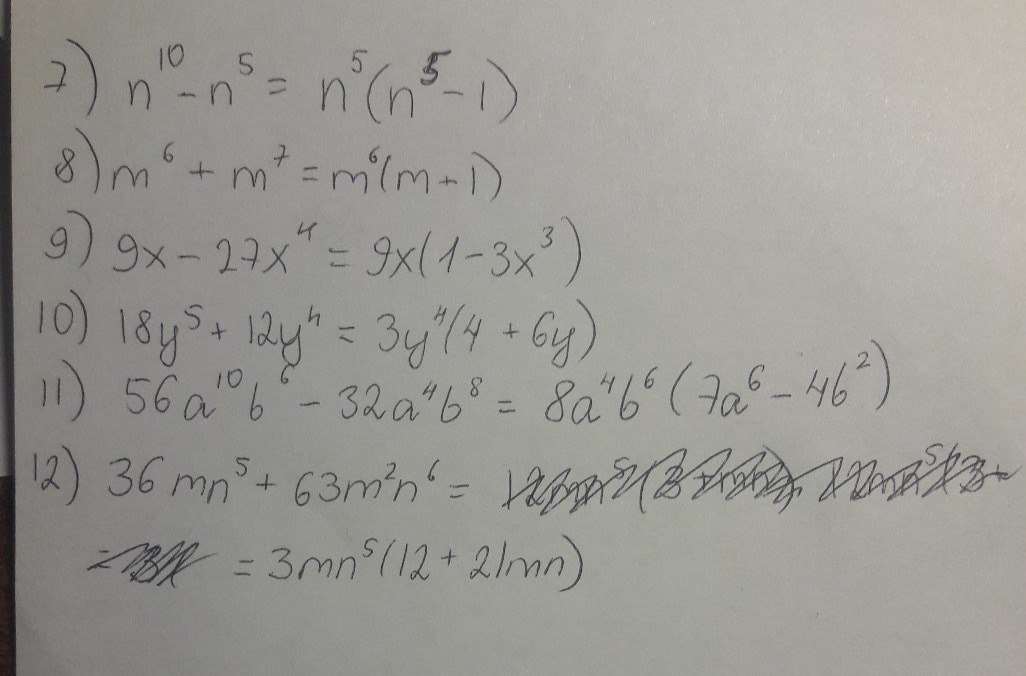 7) n¹⁰ - n⁵ = n⁵(n⁵ - 1)
8) m⁶ + m⁷ = m⁶(m + 1)
9) 9x - 27x⁴ = 9x(1 - 3x³)
10) 18y⁵ + 12y⁴ = 3y⁴(4 + 6y)
11) 56a¹⁰b⁶ - 32a⁴b⁸ = 8a⁴b⁶(7a⁶ - 4b²)
12) 36mn⁵ + 63m²n⁶ =
= 3mn⁵(12 + 21mn)